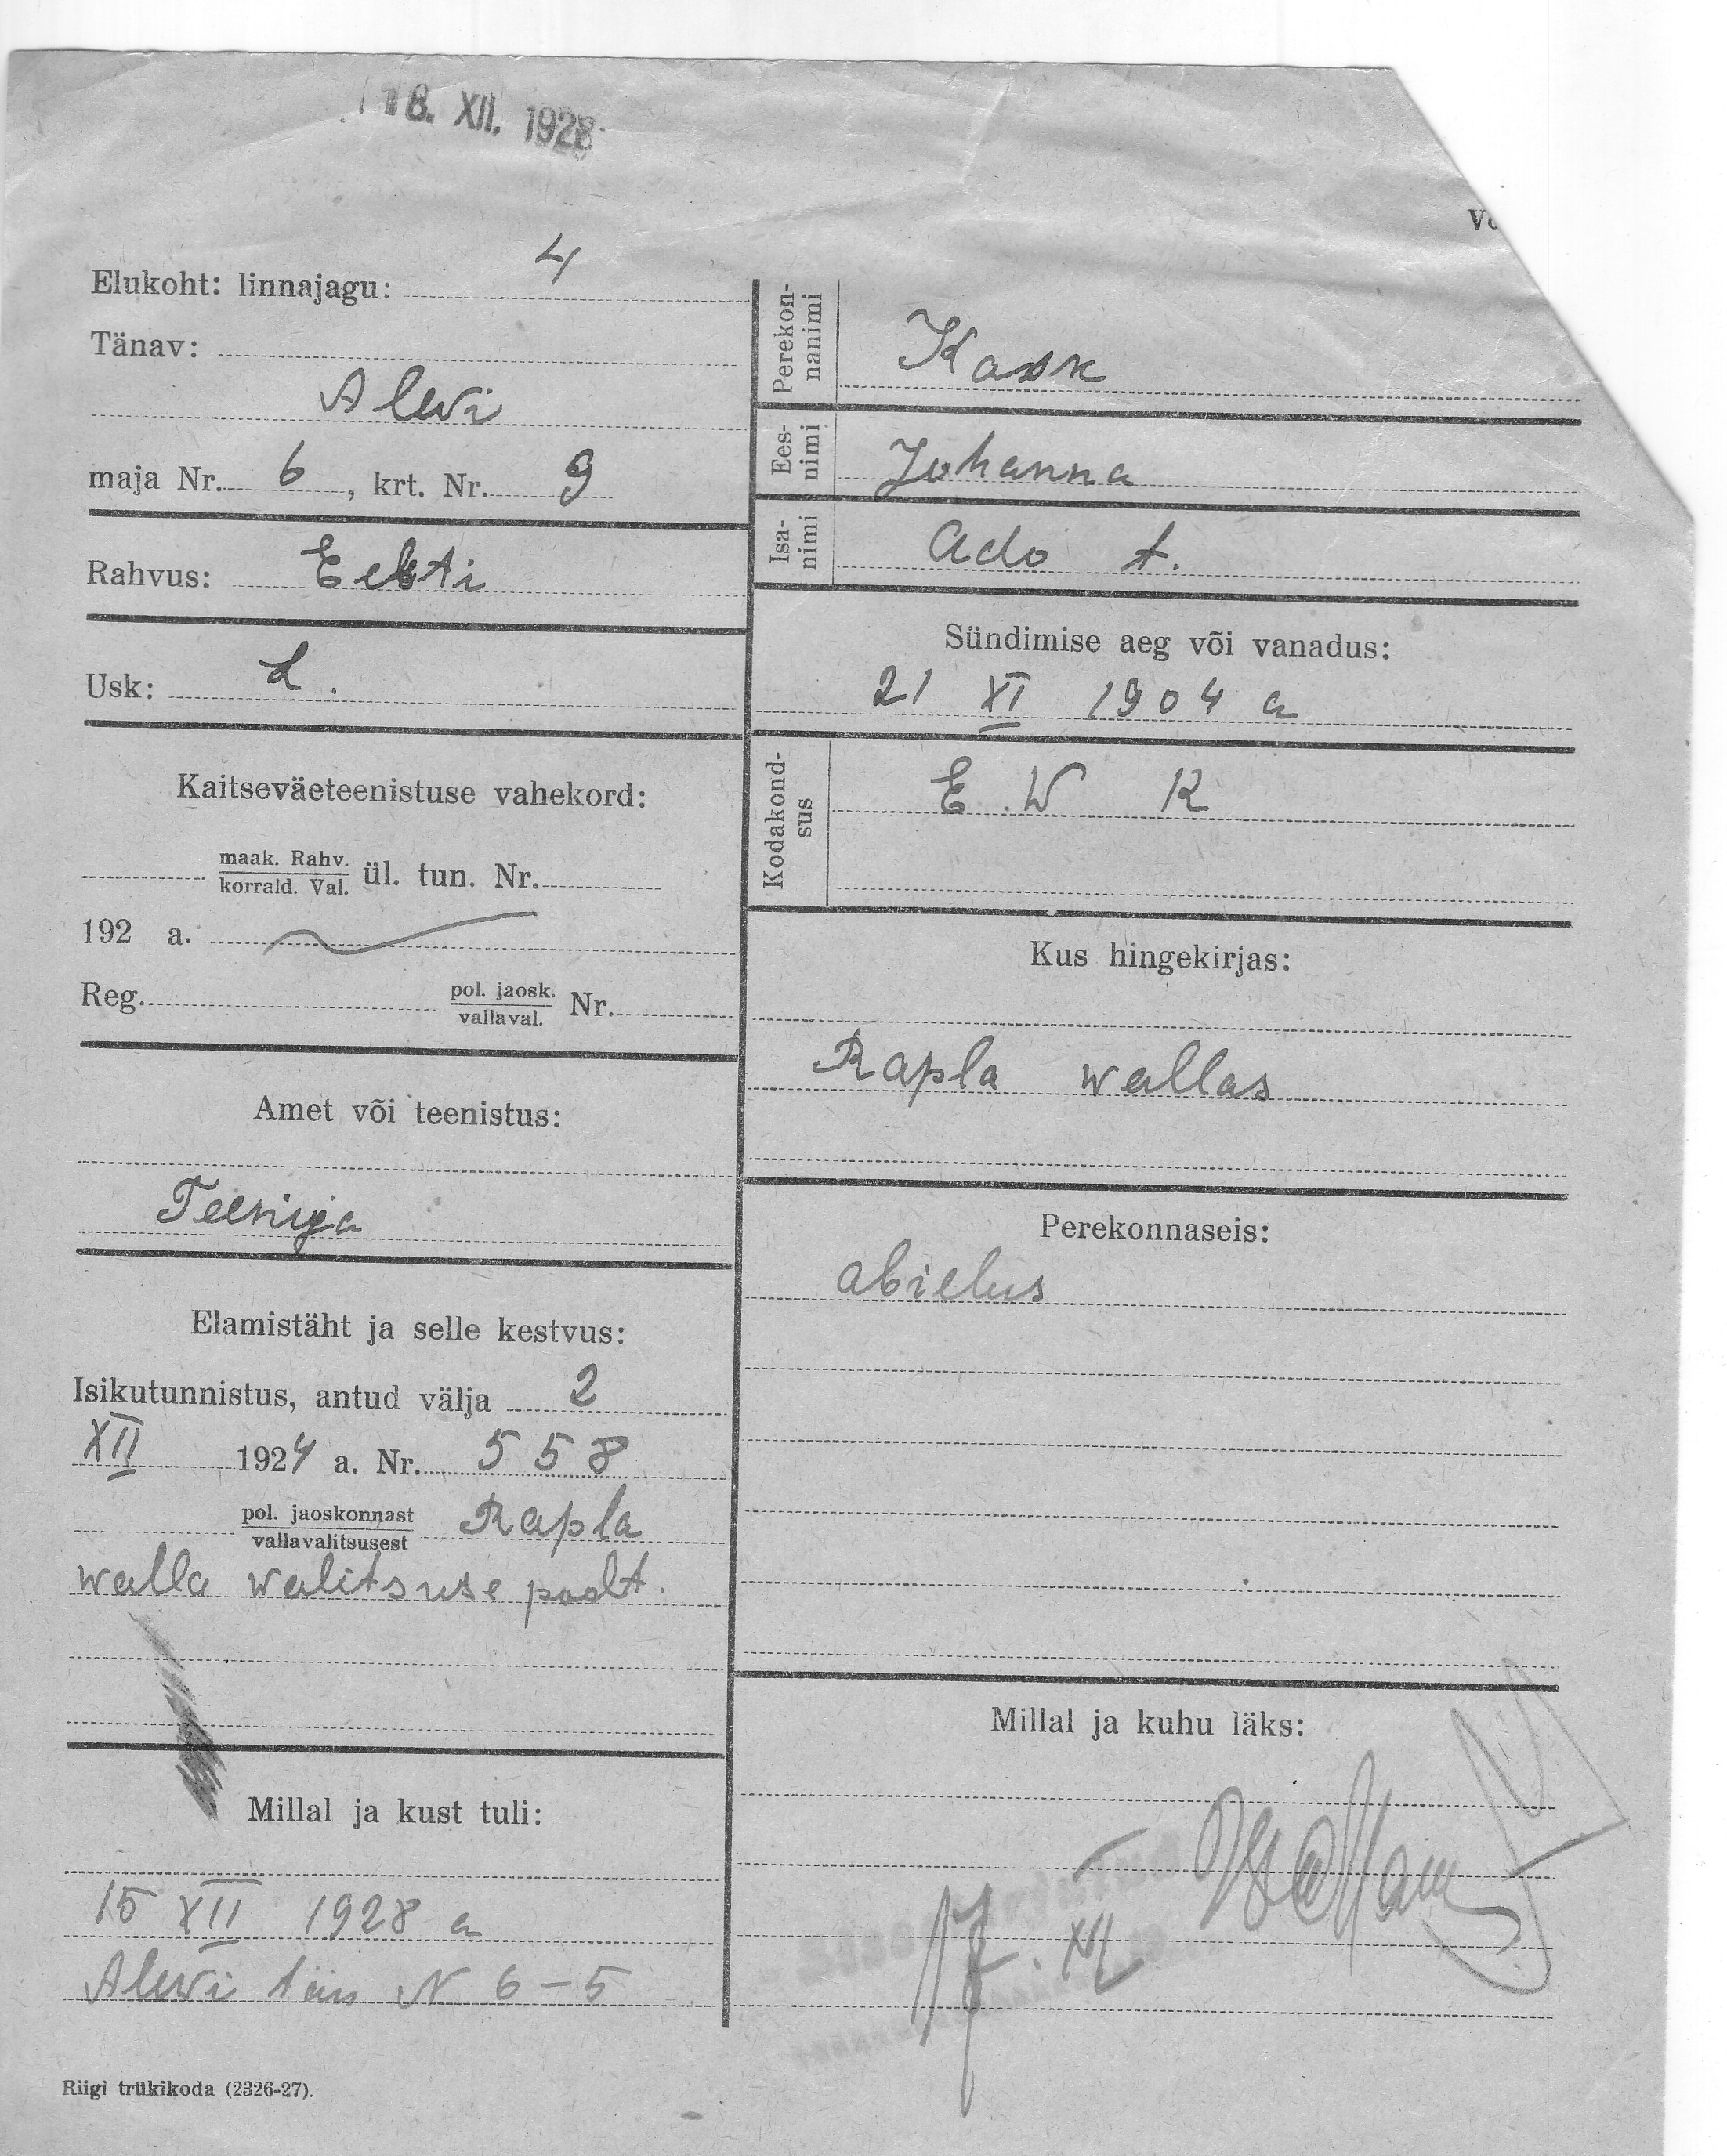 18. XII. 1928
Elukoht: linnajagu: 4
Tänav:
Alevi
maja Nr. 6, krt. Nr. 9
Rahvus: Eesti
Usk: L.
Kaitseväeteenistuse vahekord:
maak. Rahv.
korrald. Val. ül. tun. Nr.
192 a.
Reg. pol. jaosk.
vallaval. Nr.
Amet või teenistus:
Teenija
Elamistäht ja selle kestvus:
Isikutunnistus, antud välja 2
XII 1924 a. Nr. 558
pol. jaoskonnast
vallavalitsusest Rapla
walla walitsuse poolt.
Millal ja kust tuli:
15 XII 1928 a
Alewi tän N 6-5
Riigi trükikoda (2326-27).
Perekon-
nanimi Kask
Ees-
nimi Johanna
Isa-
nimi Ado t.
Sündimise aeg või vanadus:
21 XI 1904 a
Kodakond-
sus E.W K
Kus hingekirjas:
Rapla wallas
Perekonnaseis:
abielus
Millal ja kuhu läks: